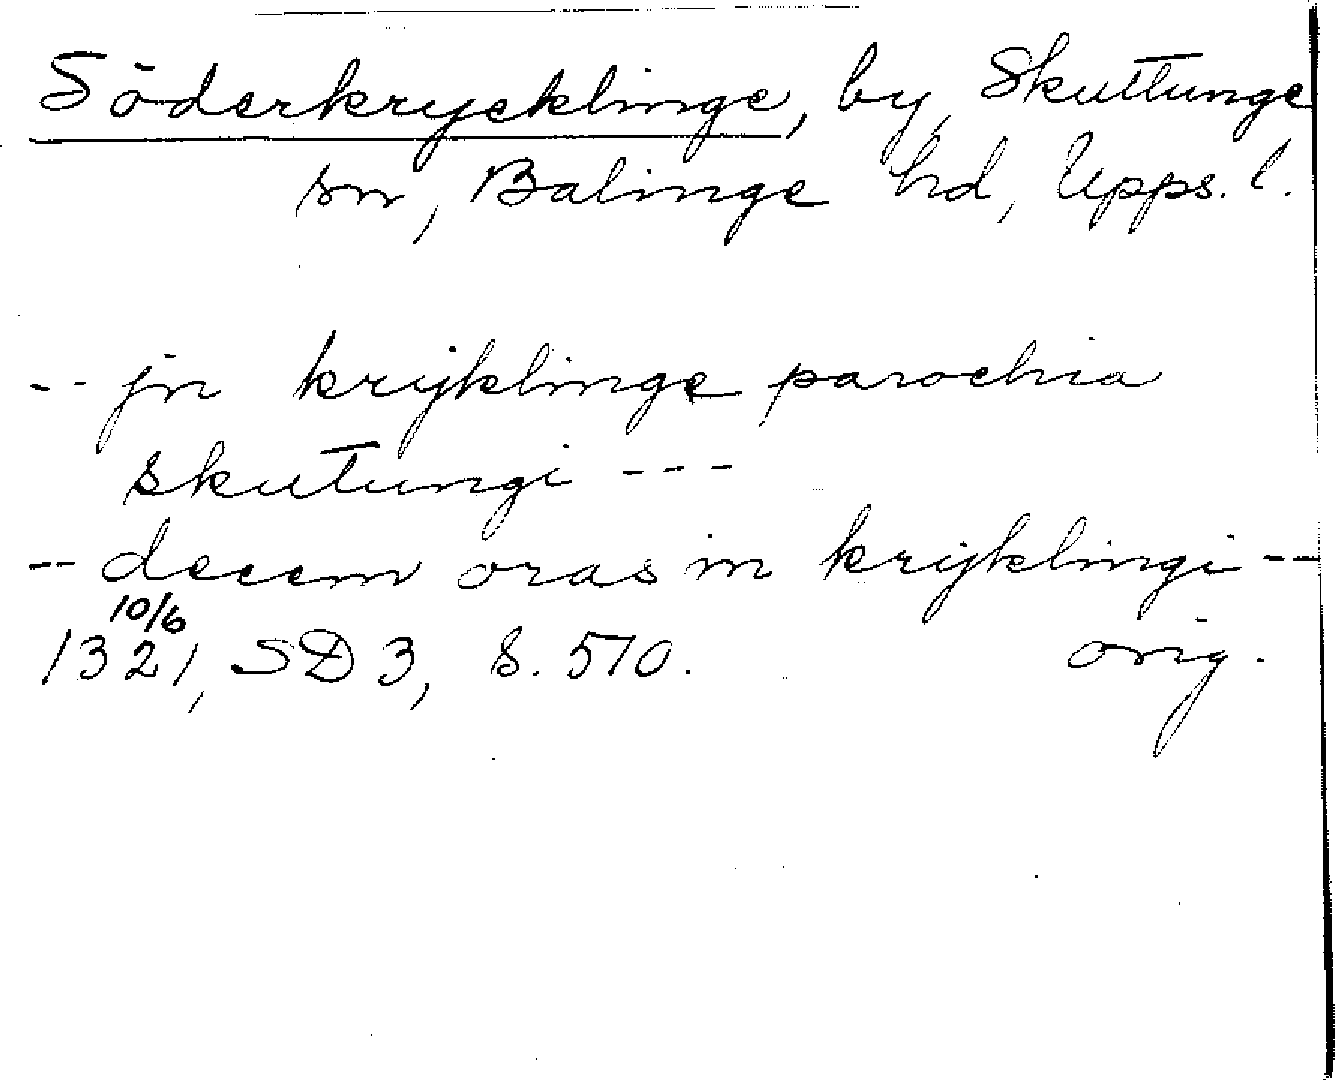 Söderkrycklinge, by, Skuttunge
sn, Balinge hd, Upps. l.
-- jn krijklinge parochia
skutungi ---
-- decem oras in krijklingi --
10/6
1321, SD 3, s. 570. orig.